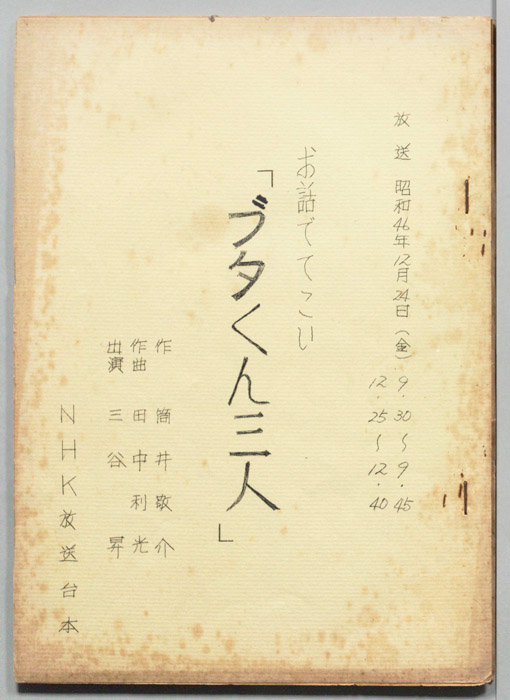 放送 昭和46年12月24日(金) 9.30〜9.45
12.25〜12.40
お話でてこい
「ブタくん三人」
作 筒井敬介
作曲 田中利光
出演 三谷昇
NHK放送台本